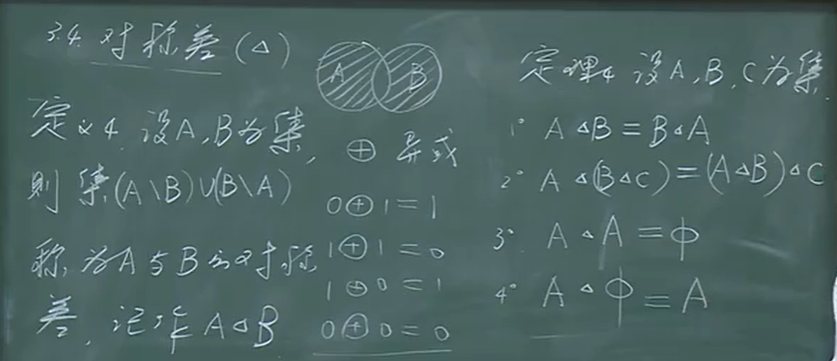 3.4. 对称差(△)
A B
定义4. 设A,B为集,
则集(A\B)∪(B\A)
称为A与B的对称
差,记作A△B
⊕ 异或
0⊕1=1
1⊕1=0
1⊕0=1
0⊕0=0
定理4 设A,B,C为集
1° A△B=B△A
2° A△(B△C)=(A△B)△C
3° A△A=Φ
4° A△Φ=A